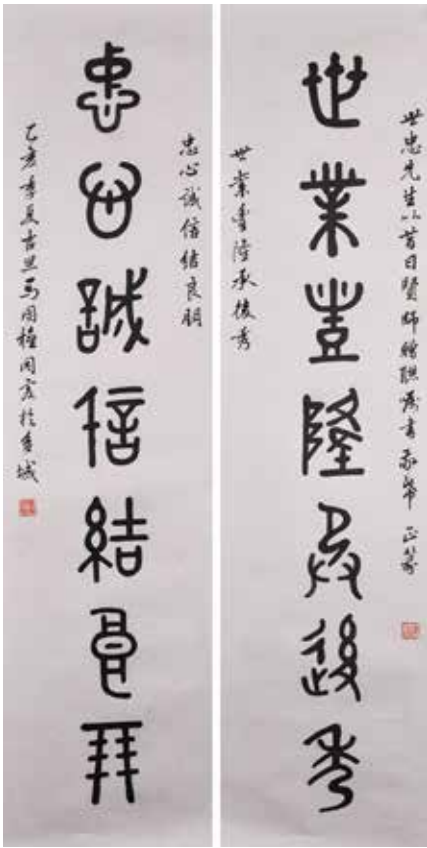 世忠先生以昔日賢師贈聯囑書希 正篆
世業豐隆承後秀
世業豐隆承後秀
忠心誠信結良朋
忠心誠信結良朋
乙亥季夏馬国權同客於香城